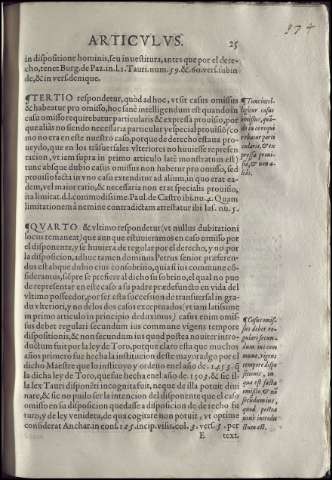 374
ARTICVLVS. 25
in dispositione hominis, seu inuestitura, antes que por el dere-
cho, tenet Burg. de Paz. in l. 1. Tauri. num. 59. & 60. vers. iubin
de, & in vers. denique.
¶TERTIO respondetur, quòd ad hoc, vt si casus omissus
& habeatur pro omisso, hoc sane intelligendum est quando in
casu omisso requirebatur particularis & expressa prouisio, por
que alias no siendo necesaria particular y especial prouisiõ (co
mo no era en este nuestro caso, porque de derecho estaua pro
ueydo, que en los trãsuersales vlteriores no huuiesse represen-
tacion, vt iam supra in primo articulo latè monstratum est)
tunc absque dubio casus omissus non habetur pro omisso, sed
prouisio facta in vno casu extenditur ad alium, in quo erat ea-
dem, vel maior ratio, & necessaria non erat specialis prouisio,
ita limitat. d. l. commodissime. Paul. de Castro ibi nu. 4. Quam
limitationem à nemine contradictam attestatur ibi Ias. nu. 5.
¶Tunc intel-
ligitur casus
omissus, quã-
do in eo requi
rebatur parti
cularis, & ex
pressa proui-
sio, & non a-
liàs.
¶QVARTO & vltimo respondetur (vt nullus dubitationi
locus remaneat) que aunque estuuieramos en caso omisso por
el disponente, y se huuiera de regular por el derecho, y no por
la disposicion, adhuc tamen dominus Petrus senior præferen-
dus est absque dubio eius consobrino, quia si ius commune cõ-
sideramus, dõ pe se prefiere al dicho su sobrino, el qual no pue
de representar en este caso a su padre prædefuncto en vida del
vltimo possessor, por ser esta succession de transuersal in gra-
du vlteriori, y no de los dos casos exceptuados (vt iam latissime
in primo articulo in principio deduximus) casus enim omis-
sus debet regulari secundum ius commune vigens tempore
dispositionis, & non secundum ius quod postea nouiter intro-
ductum fuit por la ley de Toro, porque claro està que muchos
años primero fue hecha la institucion deste mayoradgo por el
dicho Maestre que lo instituyo y ordeno en el año de. 1453. q̃
la dicha ley de Toro, que fue hecha en el año de. 1505. & sic il-
la lex Tauri disponẽti incognita fuit, neque de illa potuit diui
nare, & sic no pudo ser la intencion del disponente que el caso
omisso en su disposicion quedasse a disposicion de derecho fu-
turo, y de ley venidera, de qua cogitare non potuit, vt optime
considerat Ancha. in cons. 125. incip. vilis. col. 3. vers. 5. per
¶Casus omis-
sus debet re-
gulari secun-
dum ius com
mune, vigens
tempore dispo
sitionis, in
qua est facta
omissio, & nõ
secundum
ius, quod
postea noui-
ter introdu-
ctum est.
E. text.